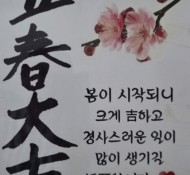 立春大吉
봄이 시작되니
크게 吉하고
경사스러운 일이
많이 생기길